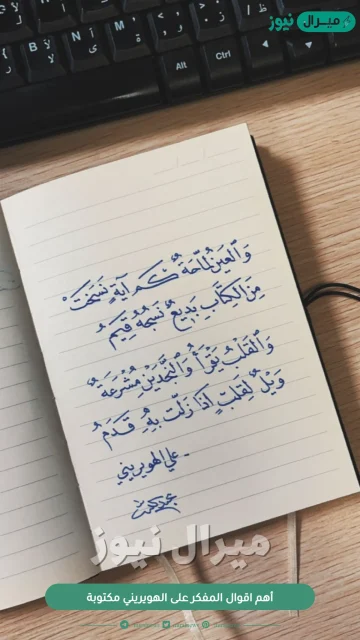 ميرال نيوز
Alt
Ctrl
وَالعَينُ لمّاحَةٌ كم آيةٍ نَسَخَتْ
مِنَ الكِتَابِ بَدِيعٌ نَسجُهُ قِيَمُ
وَالقَلْبُ يَقْرَأُ وَالنَّجْدَيْنِ مُشْرَعَةٌ
وَيْلٌ لِقَلبٍ اذَا زَلّت بِهِ قَدَمُ
- علي الهويريني
ميرال نيوز
أهم اقوال المفكر على الهويريني مكتوبة